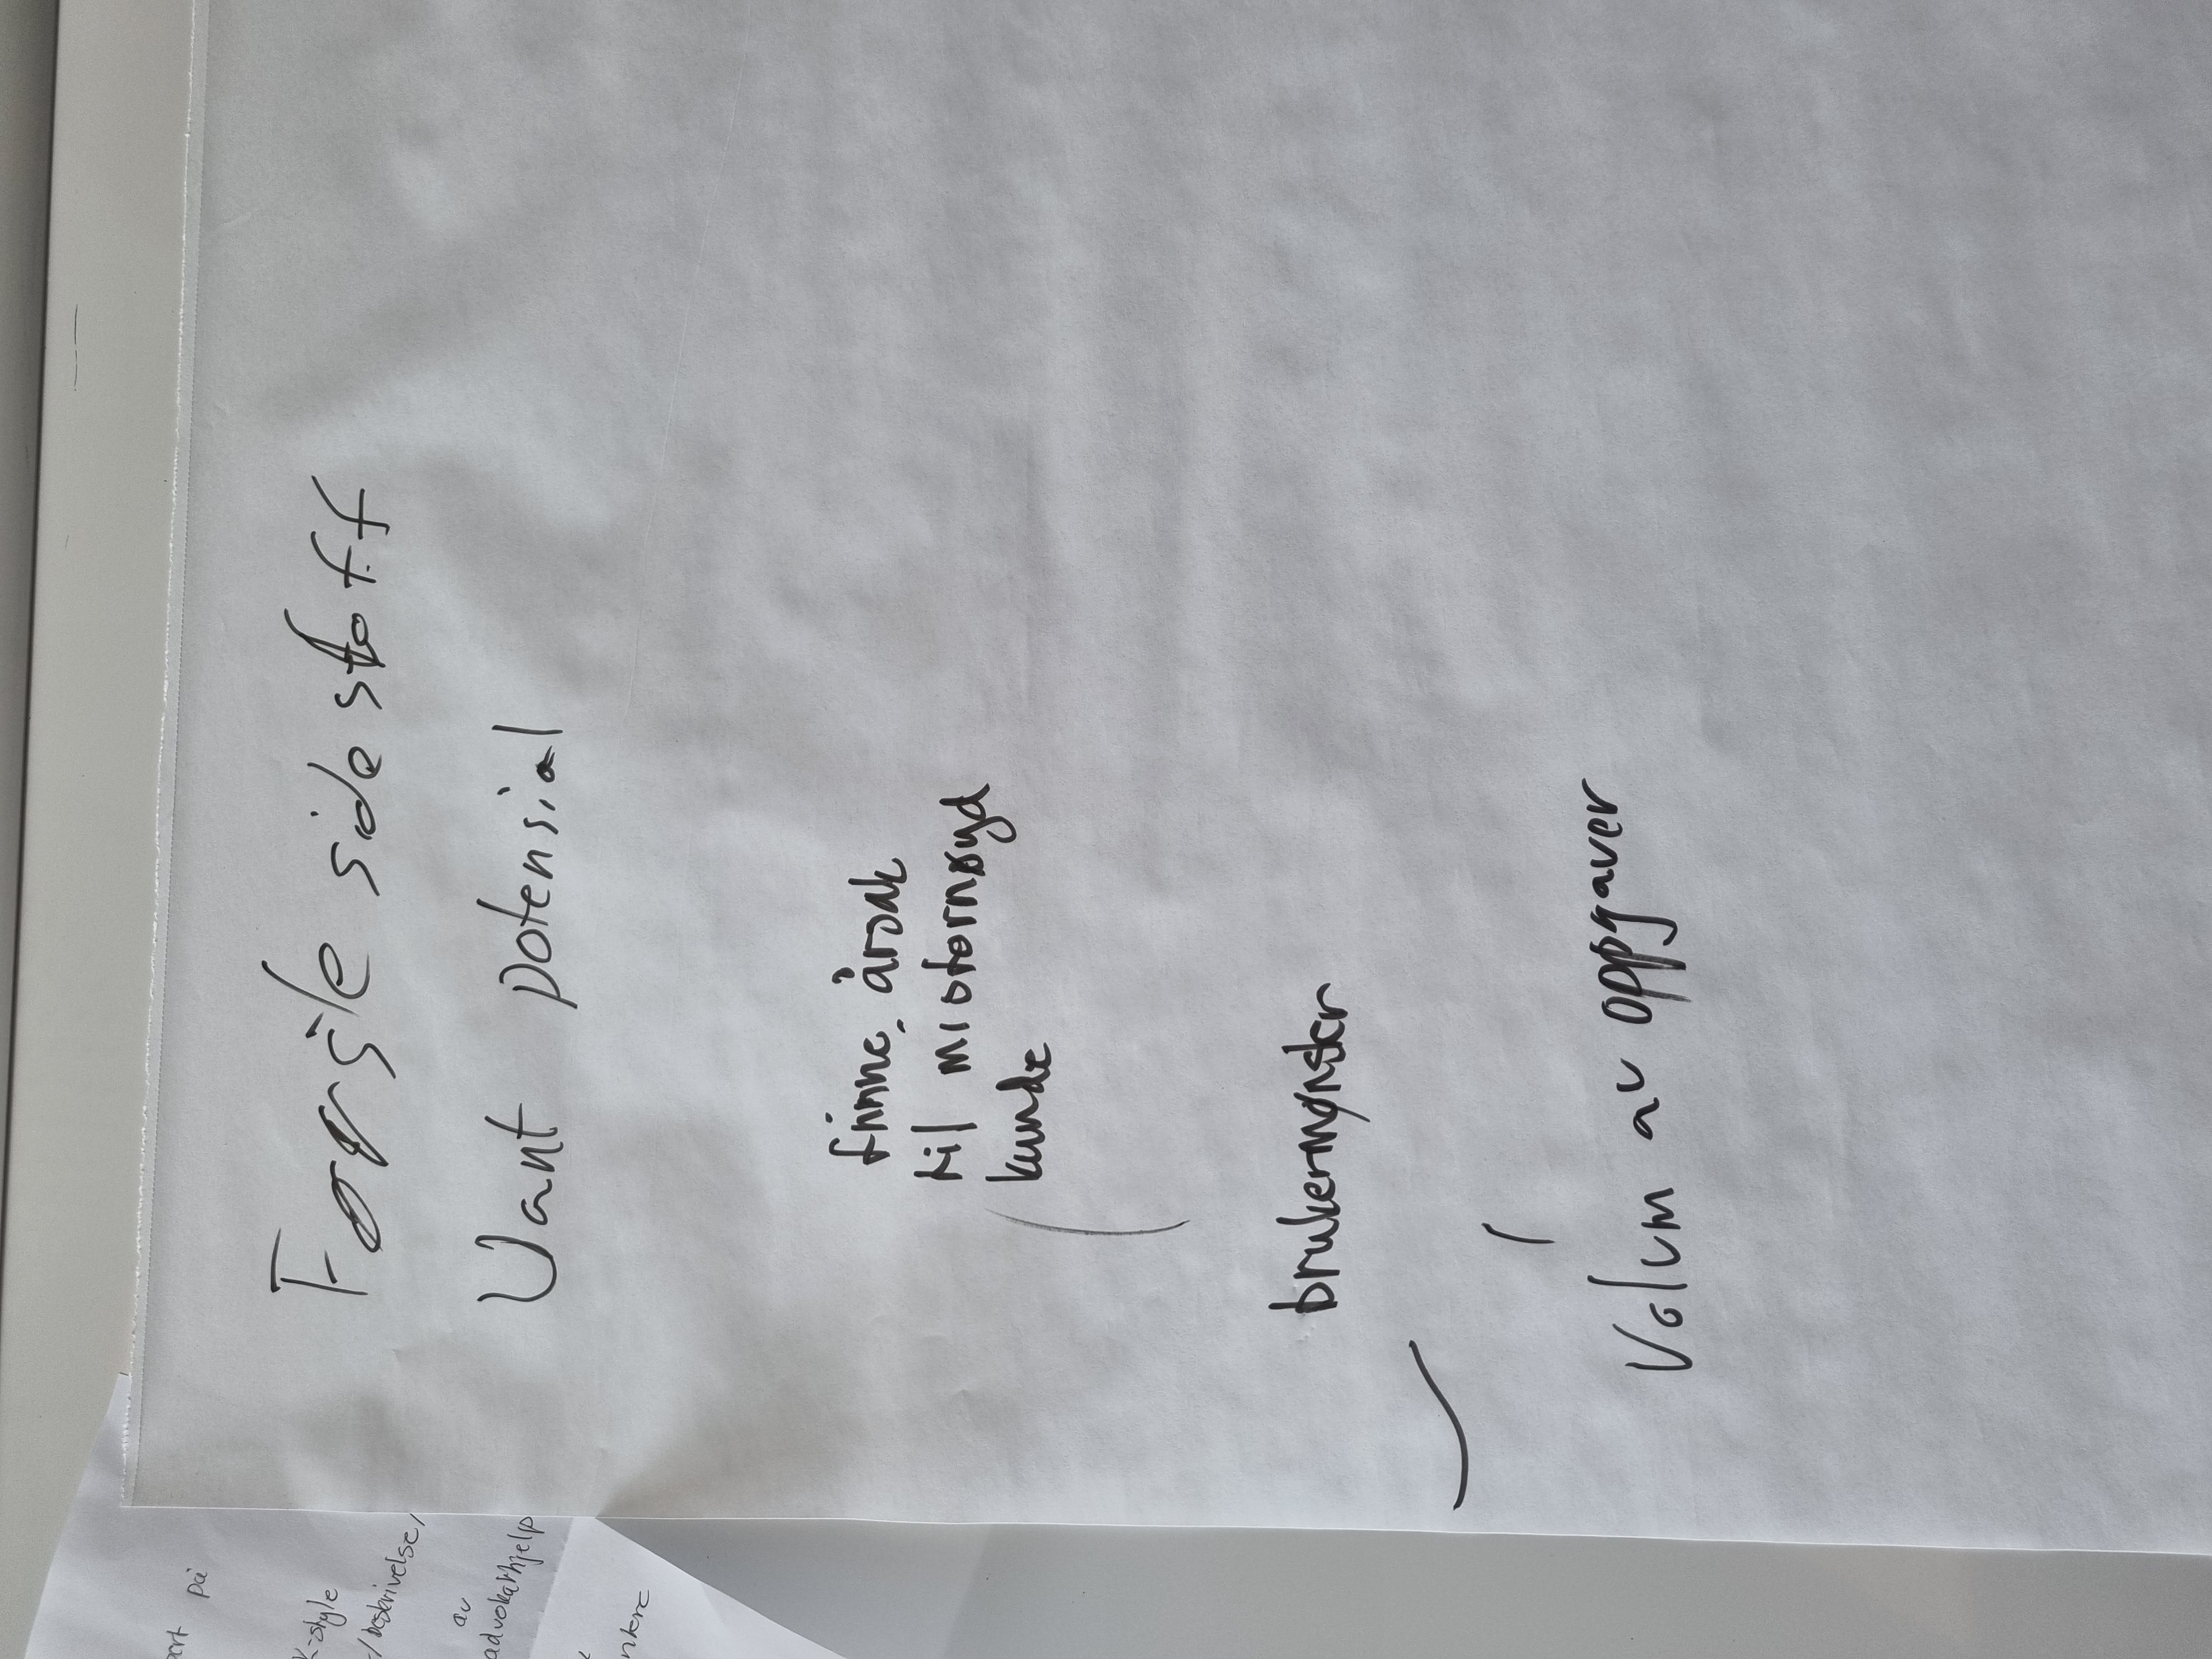 på
K-style
/beskrivelse/
av
advokathjelp
Første side stoff
Uant potensial
finne årsak
til misfornøyd
kunde
brukermønster
Volum av oppgaver